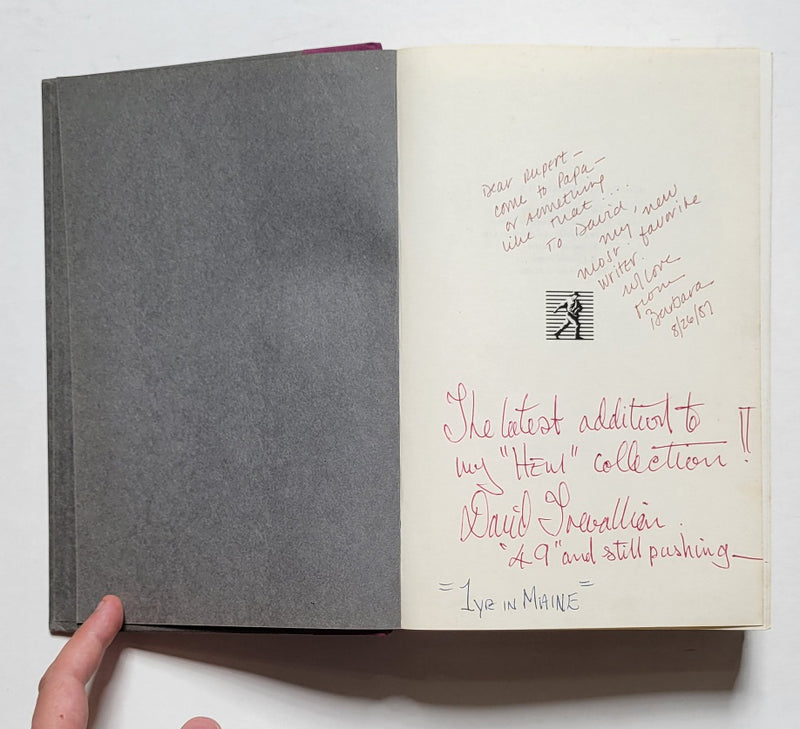 Dear Rupert—
come to Papa—
or something
like that...
To David,
my new
most favorite
writer.
w/love
from
Barbara
8/26/87
The latest addition to
my "HEM" collection!!
David Trevallian.
"49" and still pushing—
="1YR IN MAINE"=